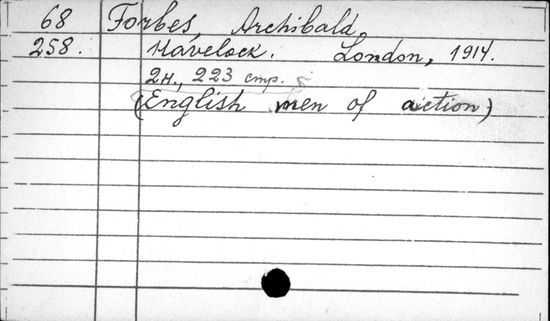 68 Forbes, Archibald.
258. Havelock. London, 1914.
2 н., 223 стр.
(English men of action)